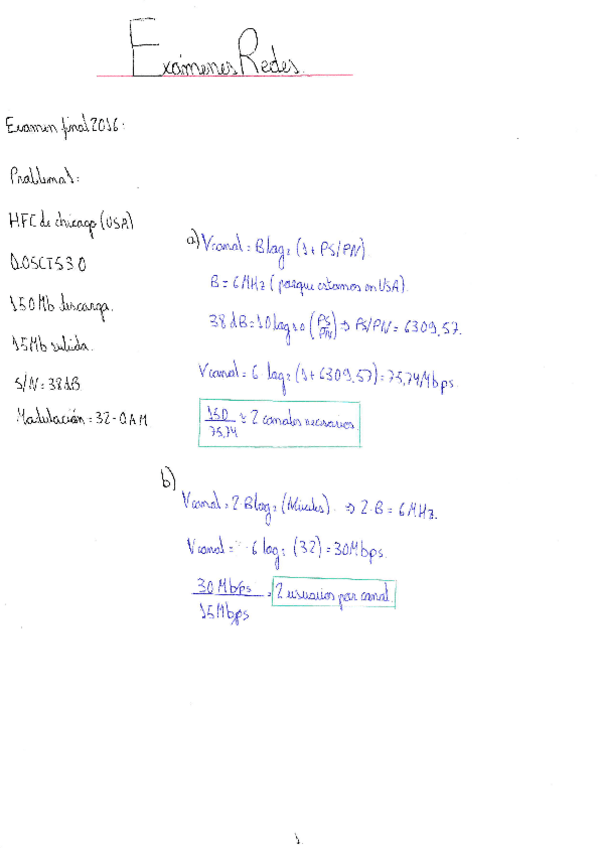 Exámenes Redes.
Examen final 2016:
Problema 1:
HFC de chicago (USA)
DOSCIS 3 0
150 Mb descarga.
15 Mb subida.
S/N = 38 dB
Modulación = 32-QAM
a) Vcanal = B log₂ (1 + PS/PN).
B = 6 MHz (porque estamos en USA).
38 dB = 10 log10 (PS/PN) → PS/PN = 6309,57.
Vcanal = 6 log₂ (1 + 6309,57) = 75,74 Mbps.
150/75,74 ≈ 2 canales necesarios
b)
Vcanal = 2·B log₂ (Niveles). → 2·B = 6 MHz.
Vcanal = 6 log₂ (32) = 30 Mbps.
30 Mbps/15 Mbps = 2 usuarios por canal.
1.